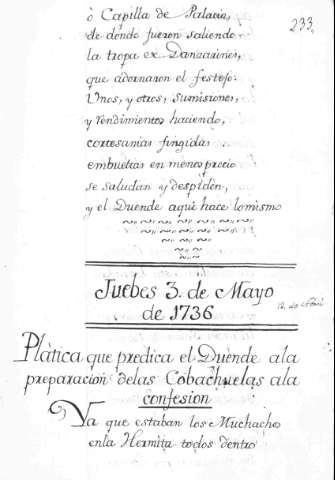 ò Capilla de Palacio,
233
de donde fueron saliendo
la tropa ex Danzarines,
que adornaron el festejo:
Unos, y otros, sumisiones,
y rendimientos haciendo,
cortesanias fingidas
embueltas en menosprecio
se saludan y despiden,
y el Duende aqui hace lo mismo
Juebes 3. de Mayo
de 1736
12. de Abril
Plàtica que predica el Duende a la
preparacion delas Cobachuelas a la
confesion
Ya que estaban los Muchachos
en la Hermita todos dentro